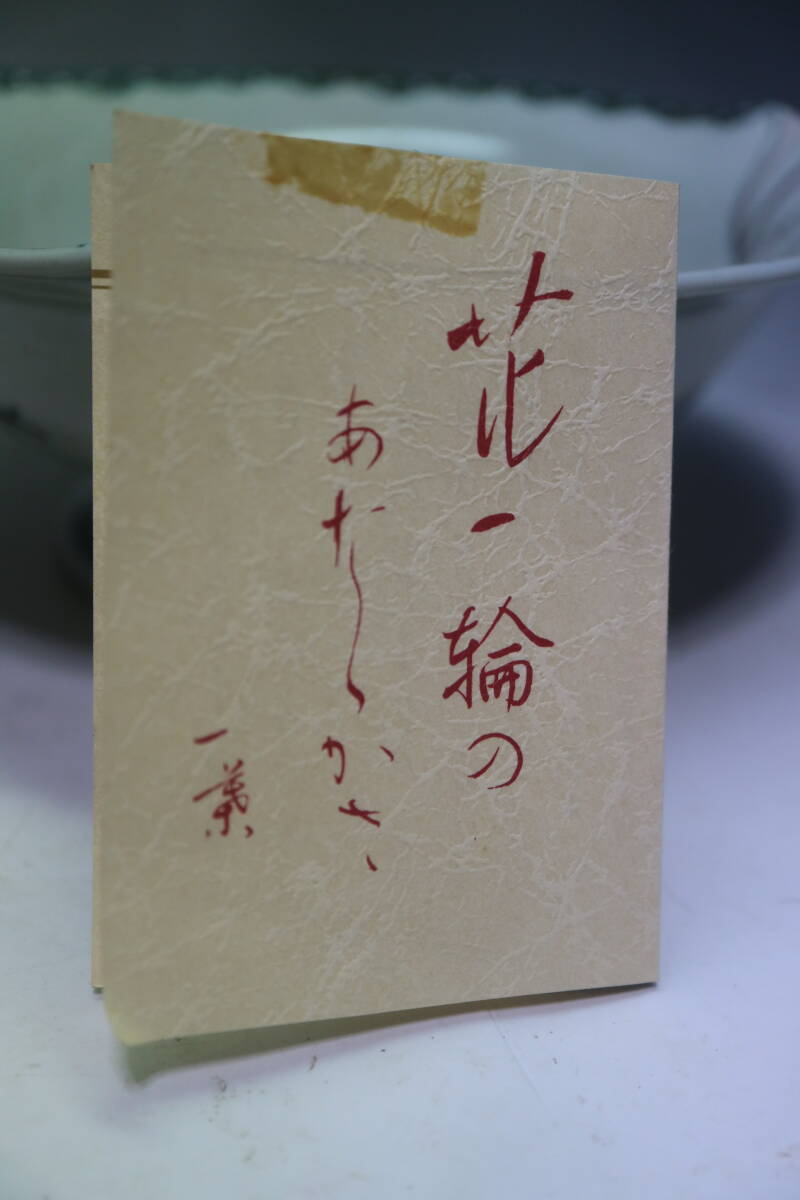 花一輪の
あたゝかさ
一葉